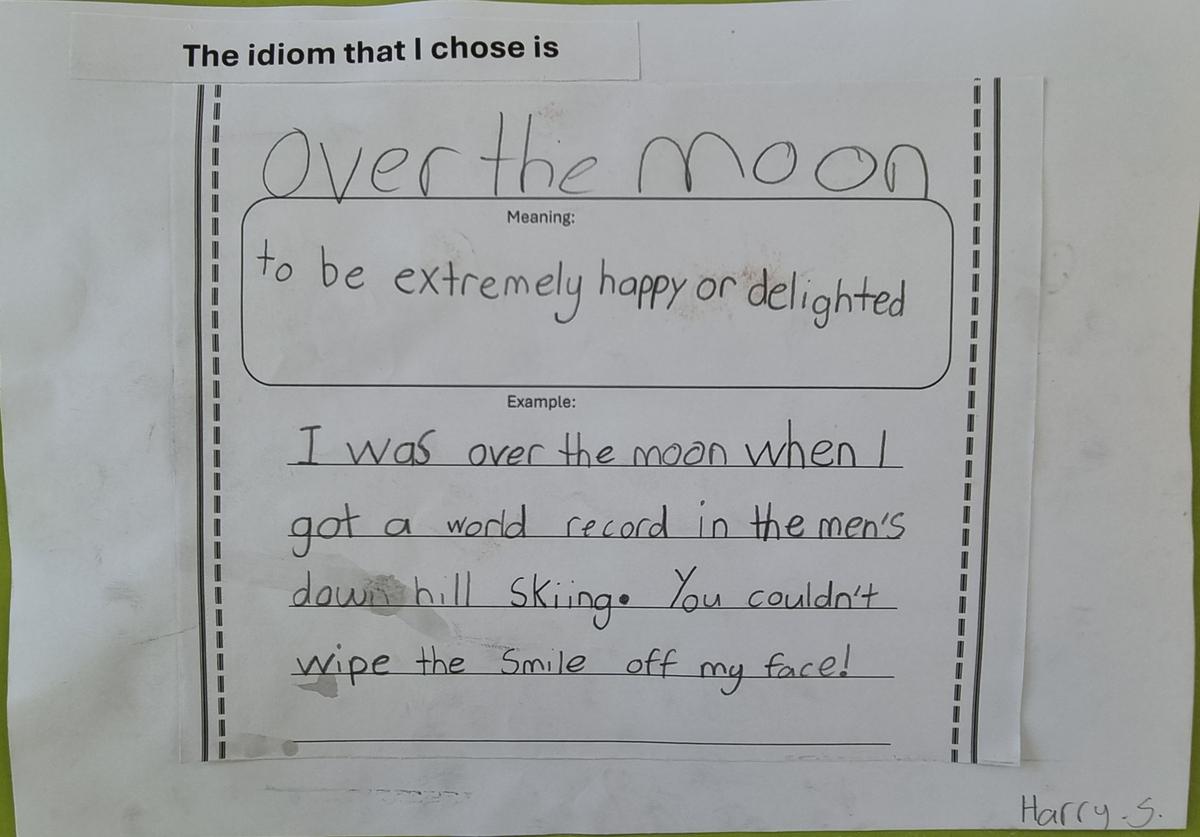 The idiom that I chose is
Over the moon
Meaning:
to be extremely happy or delighted
Example:
I was over the moon when I
got a world record in the men's
down hill skiing. You couldn't
wipe the smile off my face!
Harry.S.